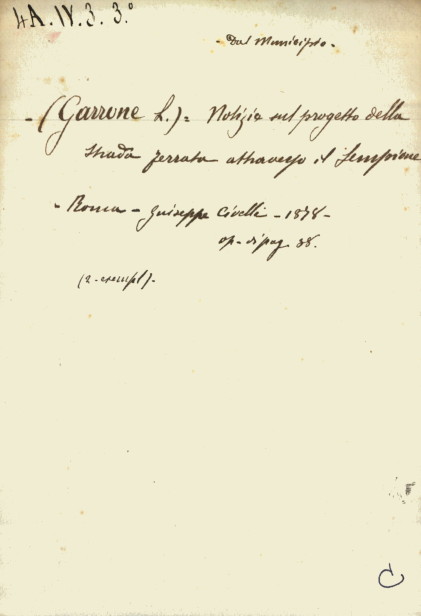 4A. IV. 3. 3.°
- Dal Municipio -
- (Garrone L.) = Notizie sul progetto della
strada ferrata attraverso il Sempione
- Roma - Giuseppe Civelli - 1878 -
op - di pag. 38.
(2 - esempl.) -
C